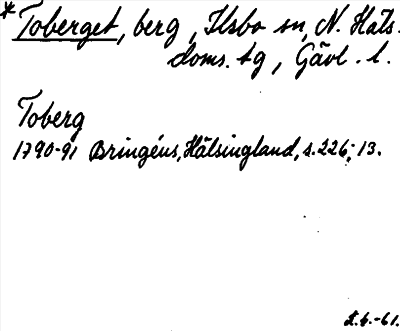 * Toberget, berg, Ilsbo sn, N. Häls.
doms. tg, Gävl. l.
Toberg
1790-91 Bringéus, Hälsingland, s. 226; 13.
L.b.-61.